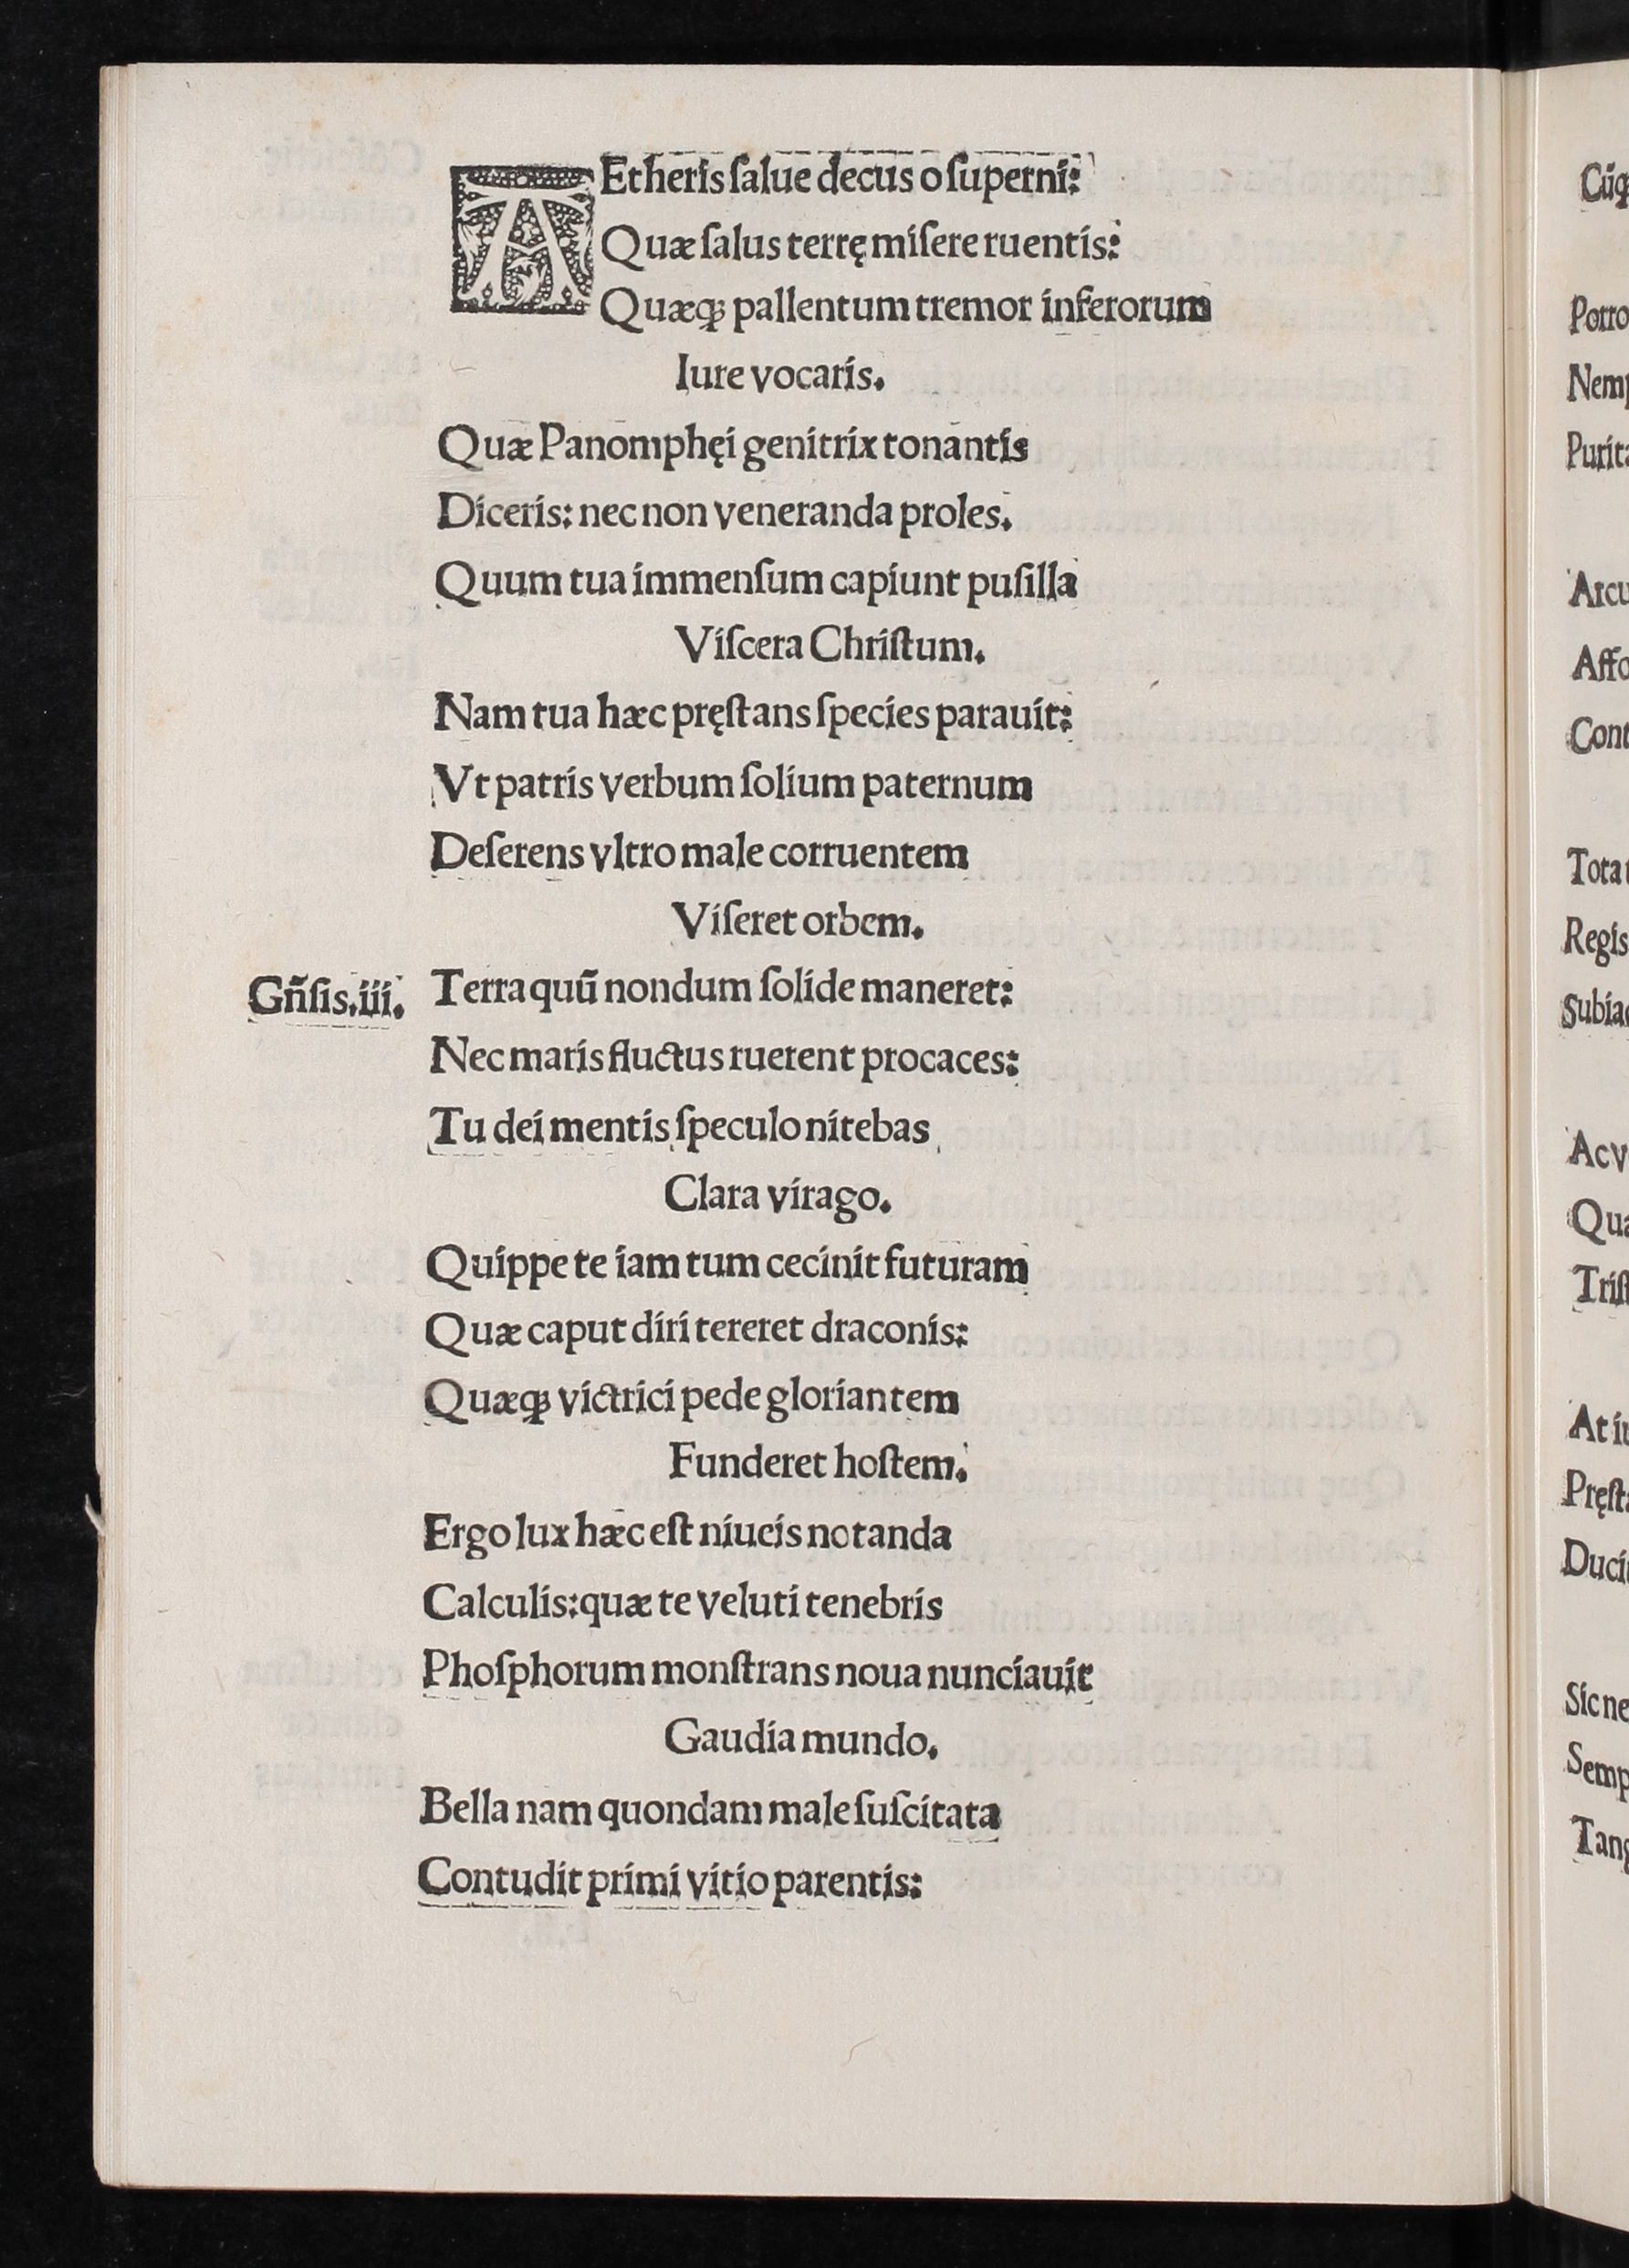 AEtheris ſalue decus o ſuperni:
Quæ ſalus terrę miſere ruentis:
Quæqꝫ pallentum tremor inferorum
Iure vocaris.
Quæ Panomphęi genitrix tonantis
Diceris: nec non veneranda proles.
Quum tua immenſum capiunt puſilla
Viſcera Chriſtum.
Nam tua hæc pręſtans ſpecies parauit:
Vt patris verbum ſolium paternum
Deſerens vltro male corruentem
Viſeret orbem.
Gñſis.iii.
Terra quū nondum ſolide maneret:
Nec maris fluctus ruerent procaces:
Tu dei mentis ſpeculo nitebas
Clara virago.
Quippe te iam tum cecinit futuram
Quæ caput diri tereret draconis:
Quæqꝫ victrici pede gloriantem
Funderet hoſtem.
Ergo lux hæc eſt niueis notanda
Calculis: quæ te veluti tenebris
Phoſphorum monſtrans noua nunciauit
Gaudia mundo.
Bella nam quondam male ſuſcitata
Contudit primi vitio parentis:
Porro
Regis
Tota